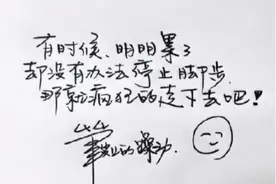 有时候、明明累了
却没有办法停止脚步.
那就疯狂的走下去吧!
的躁动.